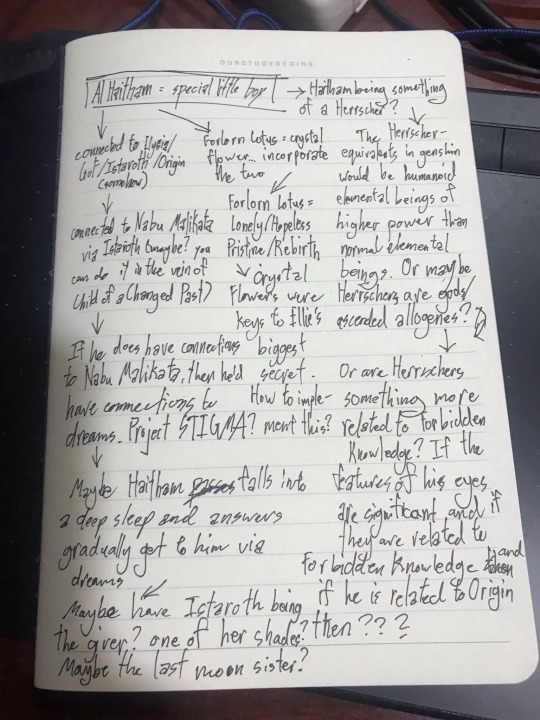 OURSTUDYBEGINS
Al Haitham = special little boy
→ Haitham being something
of a Herrscher?
connected to Elysia/
GoT/Istaroth/Origin
(somehow)
↓
connected to Nabu Malikata
via Istaroth (maybe? you
can do it in the vein of
Child of a Changed Past)
↓
If he does have connections
to Nabu Malikata, then he'd
have connections to
dreams. Project STIGMA?
↓
Maybe Haitham falls into
a deep sleep and answers
gradually get to him via
dreams
Maybe have Istaroth being
the giver? one of her shades?
Maybe the last moon sister?
Forlorn Lotus = crystal
flower... incorporate
the two
Forlorn Lotus =
Lonely/Hopeless
Pristine/Rebirth
↓ Crystal
Flowers were
keys to Ellie's
biggest
secret.
How to imple-
ment this?
The Herrscher-
equivalents in genshin
would be humanoid
elemental beings of
higher power than
normal elemental
beings. Or maybe
Herrschers are gods/
ascended allogenes?
↓
Or are Herrschers
something more
related to forbidden
Knowledge? If the
features of his eyes
are significant and if
they are related to
Forbidden Knowledge and
if he is related to Origin
then ???